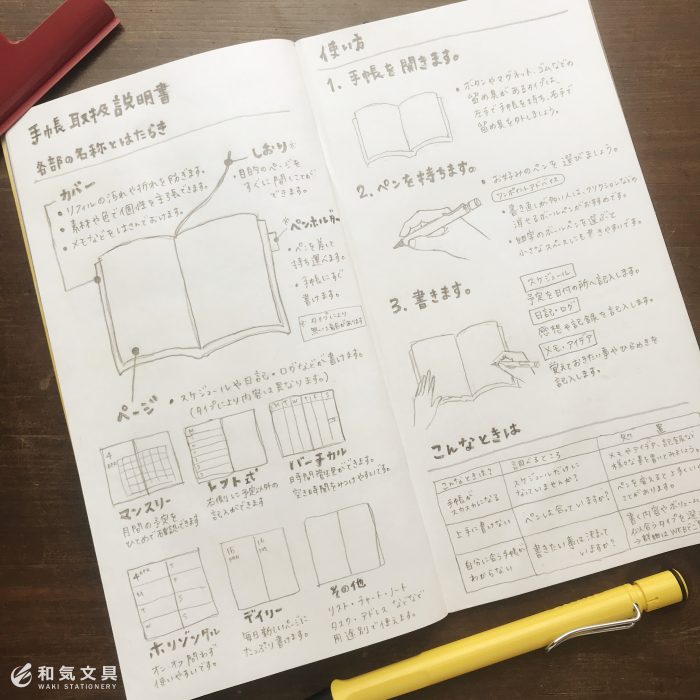 手帳取扱説明書
各部の名称とはたらき
カバー
・リフィルの汚れや折れを防ぎます。
・素材や色で個性を主張できます。
・メモなどをはさんでおけます。
しおり※
・目的のページを
すぐに開くことが
できます。
※ペンホルダー
・ペンを差して
持ち運べます。
・手帳にすぐ
書けます。
※タイプにより
無い場合があります
ページ
・スケジュールや日記・ログなどが書けます。
(タイプにより内容は異なります。)
マンスリー
月間の予定を
ひとめで確認できます
レフト式
右側に予定以外の
記入ができます
バーチカル
日時間管理ができます。
空き時間をみつけやすいです。
ホリゾンタル
オン・オフ問わず
使いやすいです。
デイリー
毎日新しいページに
たっぷり書けます。
その他
リスト・チャート・ノート
タスク・アドレスなどなど
用途別で使えます。
使い方
1. 手帳を開きます。
・ボタンやマグネット、ゴムなどの
留め具があるタイプは、
左手で手帳を持ち、右手で
留め具を外しましょう。
2. ペンを持ちます。
・お好みのペンを選びましょう。
ワンポイントアドバイス
・書き直しが多い人は、フリクションなどの
消せるボールペンがおすすめです。
・細字のボールペンを選ぶと
小さなスペースにも書きやすいです。
3. 書きます。
スケジュール
予定を日付の所へ記入します。
日記・ログ
感想や記録を記入します。
メモ・アイデア
覚えておきたい事やひらめきを
記入します。
こんなときは
こんなときは?
調べるところ
処置
手帳が
スカスカになる
スケジュールだけに
なっていませんか?
メモやアイデア、記念日など
様々な事を書いてみましょう
上手に書けない
ペンは合っていますか?
ペンを変えると上手くいく
ことがあります。
自分に合う手帳が
わからない
書きたい事は決まって
いますか?
書く内容やボリューム
に合うタイプを選
→詳細はWEBで
和気文具
WAKI STATIONERY